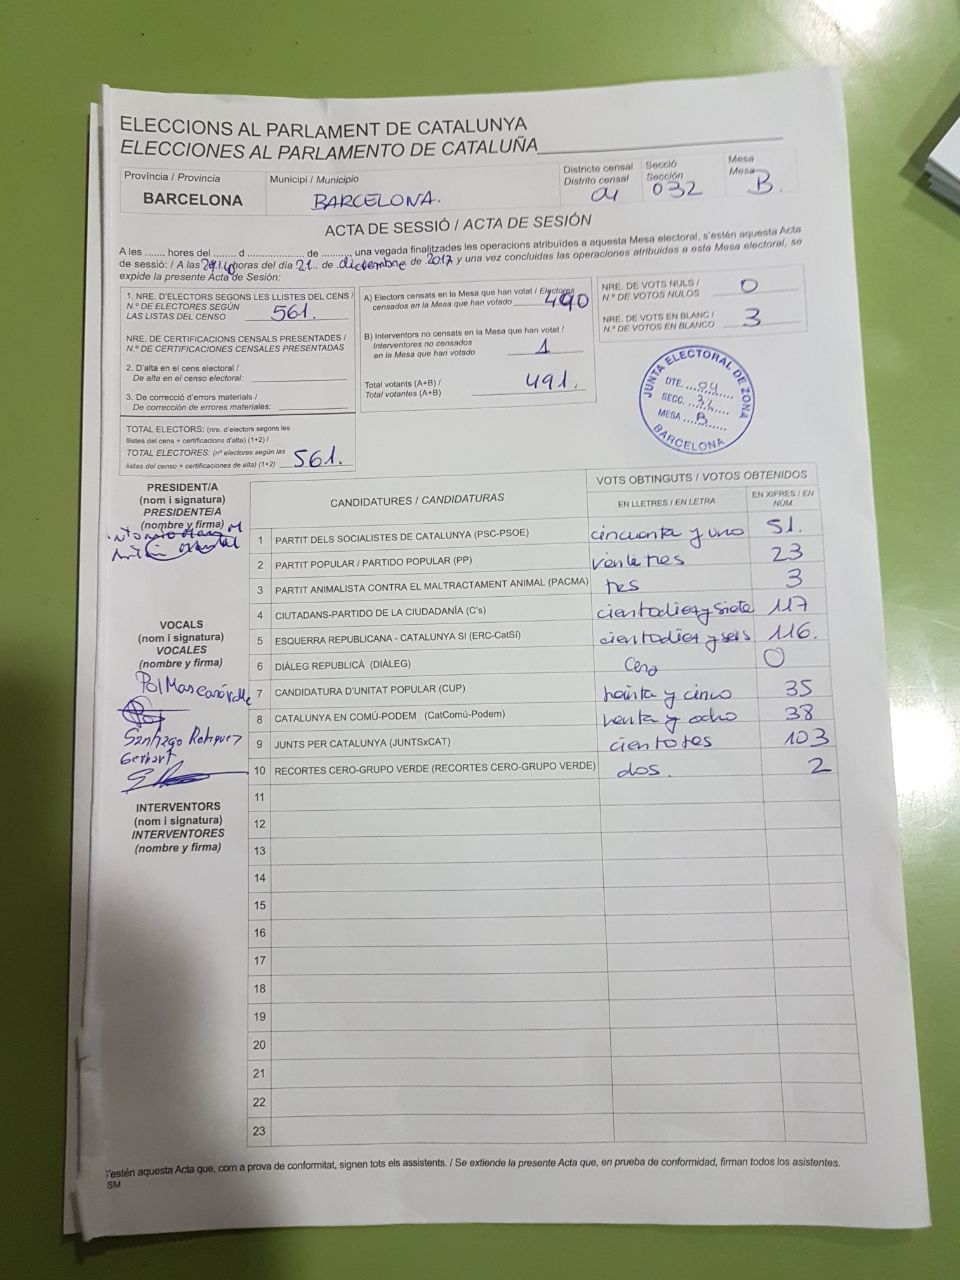 ELECCIONS AL PARLAMENT DE CATALUNYA
ELECCIONES AL PARLAMENTO DE CATALUÑA
Província / Provincia
BARCELONA
Municipi / Municipio
BARCELONA.
Districte censal
Distrito censal
Secció
Sección
032
Mesa
Mesa
B.
ACTA DE SESSIÓ / ACTA DE SESIÓN
A les ....... hores del ....... d .................... de .........., una vegada finalitzades les operacions atribuïdes a aquesta Mesa electoral, s'estén aquesta Acta
de sessió: / A las horas del día 21... de diciembre de 2017 y una vez concluidas las operaciones atribuidas a esta Mesa electoral, se
expide la presente Acta de Sesión:
1. NRE. D'ELECTORS SEGONS LES LLISTES DEL CENS /
N.º DE ELECTORES SEGÚN
LAS LISTAS DEL CENSO 561.
NRE. DE CERTIFICACIONS CENSALS PRESENTADES /
N.º DE CERTIFICACIONES CENSALES PRESENTADAS
2. D'alta en el cens electoral /
De alta en el censo electoral:
3. De correcció d'errors materials /
De corrección de errores materiales:
TOTAL ELECTORS: (nre. d'electors segons les
llistes del cens + certificacions d'alta) (1+2) /
TOTAL ELECTORES: (nº electores según las
listas del censo + certificaciones de alta) (1+2) 561.
A) Electors censats en la Mesa que han votat / Electores
censados en la Mesa que han votado 490
B) Interventors no censats en la Mesa que han votat /
Interventores no censados
en la Mesa que han votado 1
Total votants (A+B) /
Total votantes (A+B) 491.
NRE. DE VOTS NULS /
N.º DE VOTOS NULOS 0
NRE. DE VOTS EN BLANC /
N.º DE VOTOS EN BLANCO 3
JUNTA ELECTORAL DE ZONA
DTE.
SECC.
MESA B
BARCELONA
PRESIDENT/A
(nom i signatura)
PRESIDENTE/A
(nombre y firma)
VOCALS
(nom i signatura)
VOCALES
(nombre y firma)
Santiago
INTERVENTORS
(nom i signatura)
INTERVENTORES
(nombre y firma)
CANDIDATURES / CANDIDATURAS
VOTS OBTINGUTS / VOTOS OBTENIDOS
EN LLETRES / EN LETRA
EN XIFRES / EN NÚM.
1 PARTIT DELS SOCIALISTES DE CATALUNYA (PSC-PSOE) cincuenta y uno 51.
2 PARTIT POPULAR / PARTIDO POPULAR (PP) veintetres 23
3 PARTIT ANIMALISTA CONTRA EL MALTRACTAMENT ANIMAL (PACMA) tres 3
4 CIUTADANS-PARTIDO DE LA CIUDADANÍA (C's) cientodiez y siete 117
5 ESQUERRA REPUBLICANA - CATALUNYA SÍ (ERC-CatSÍ) cientodiez y seis 116.
6 DIÀLEG REPUBLICÀ (DIÀLEG) Cero 0
7 CANDIDATURA D'UNITAT POPULAR (CUP) treinta y cinco 35
8 CATALUNYA EN COMÚ-PODEM (CatComú-Podem) trenta y ocho 38
9 JUNTS PER CATALUNYA (JUNTSxCAT) ciento tres 103
10 RECORTES CERO-GRUPO VERDE (RECORTES CERO-GRUPO VERDE) dos. 2
11
12
13
14
15
16
17
18
19
20
21
22
23
S'estén aquesta Acta que, com a prova de conformitat, signen tots els assistents. / Se extiende la presente Acta que, en prueba de conformidad, firman todos los asistentes.
SM